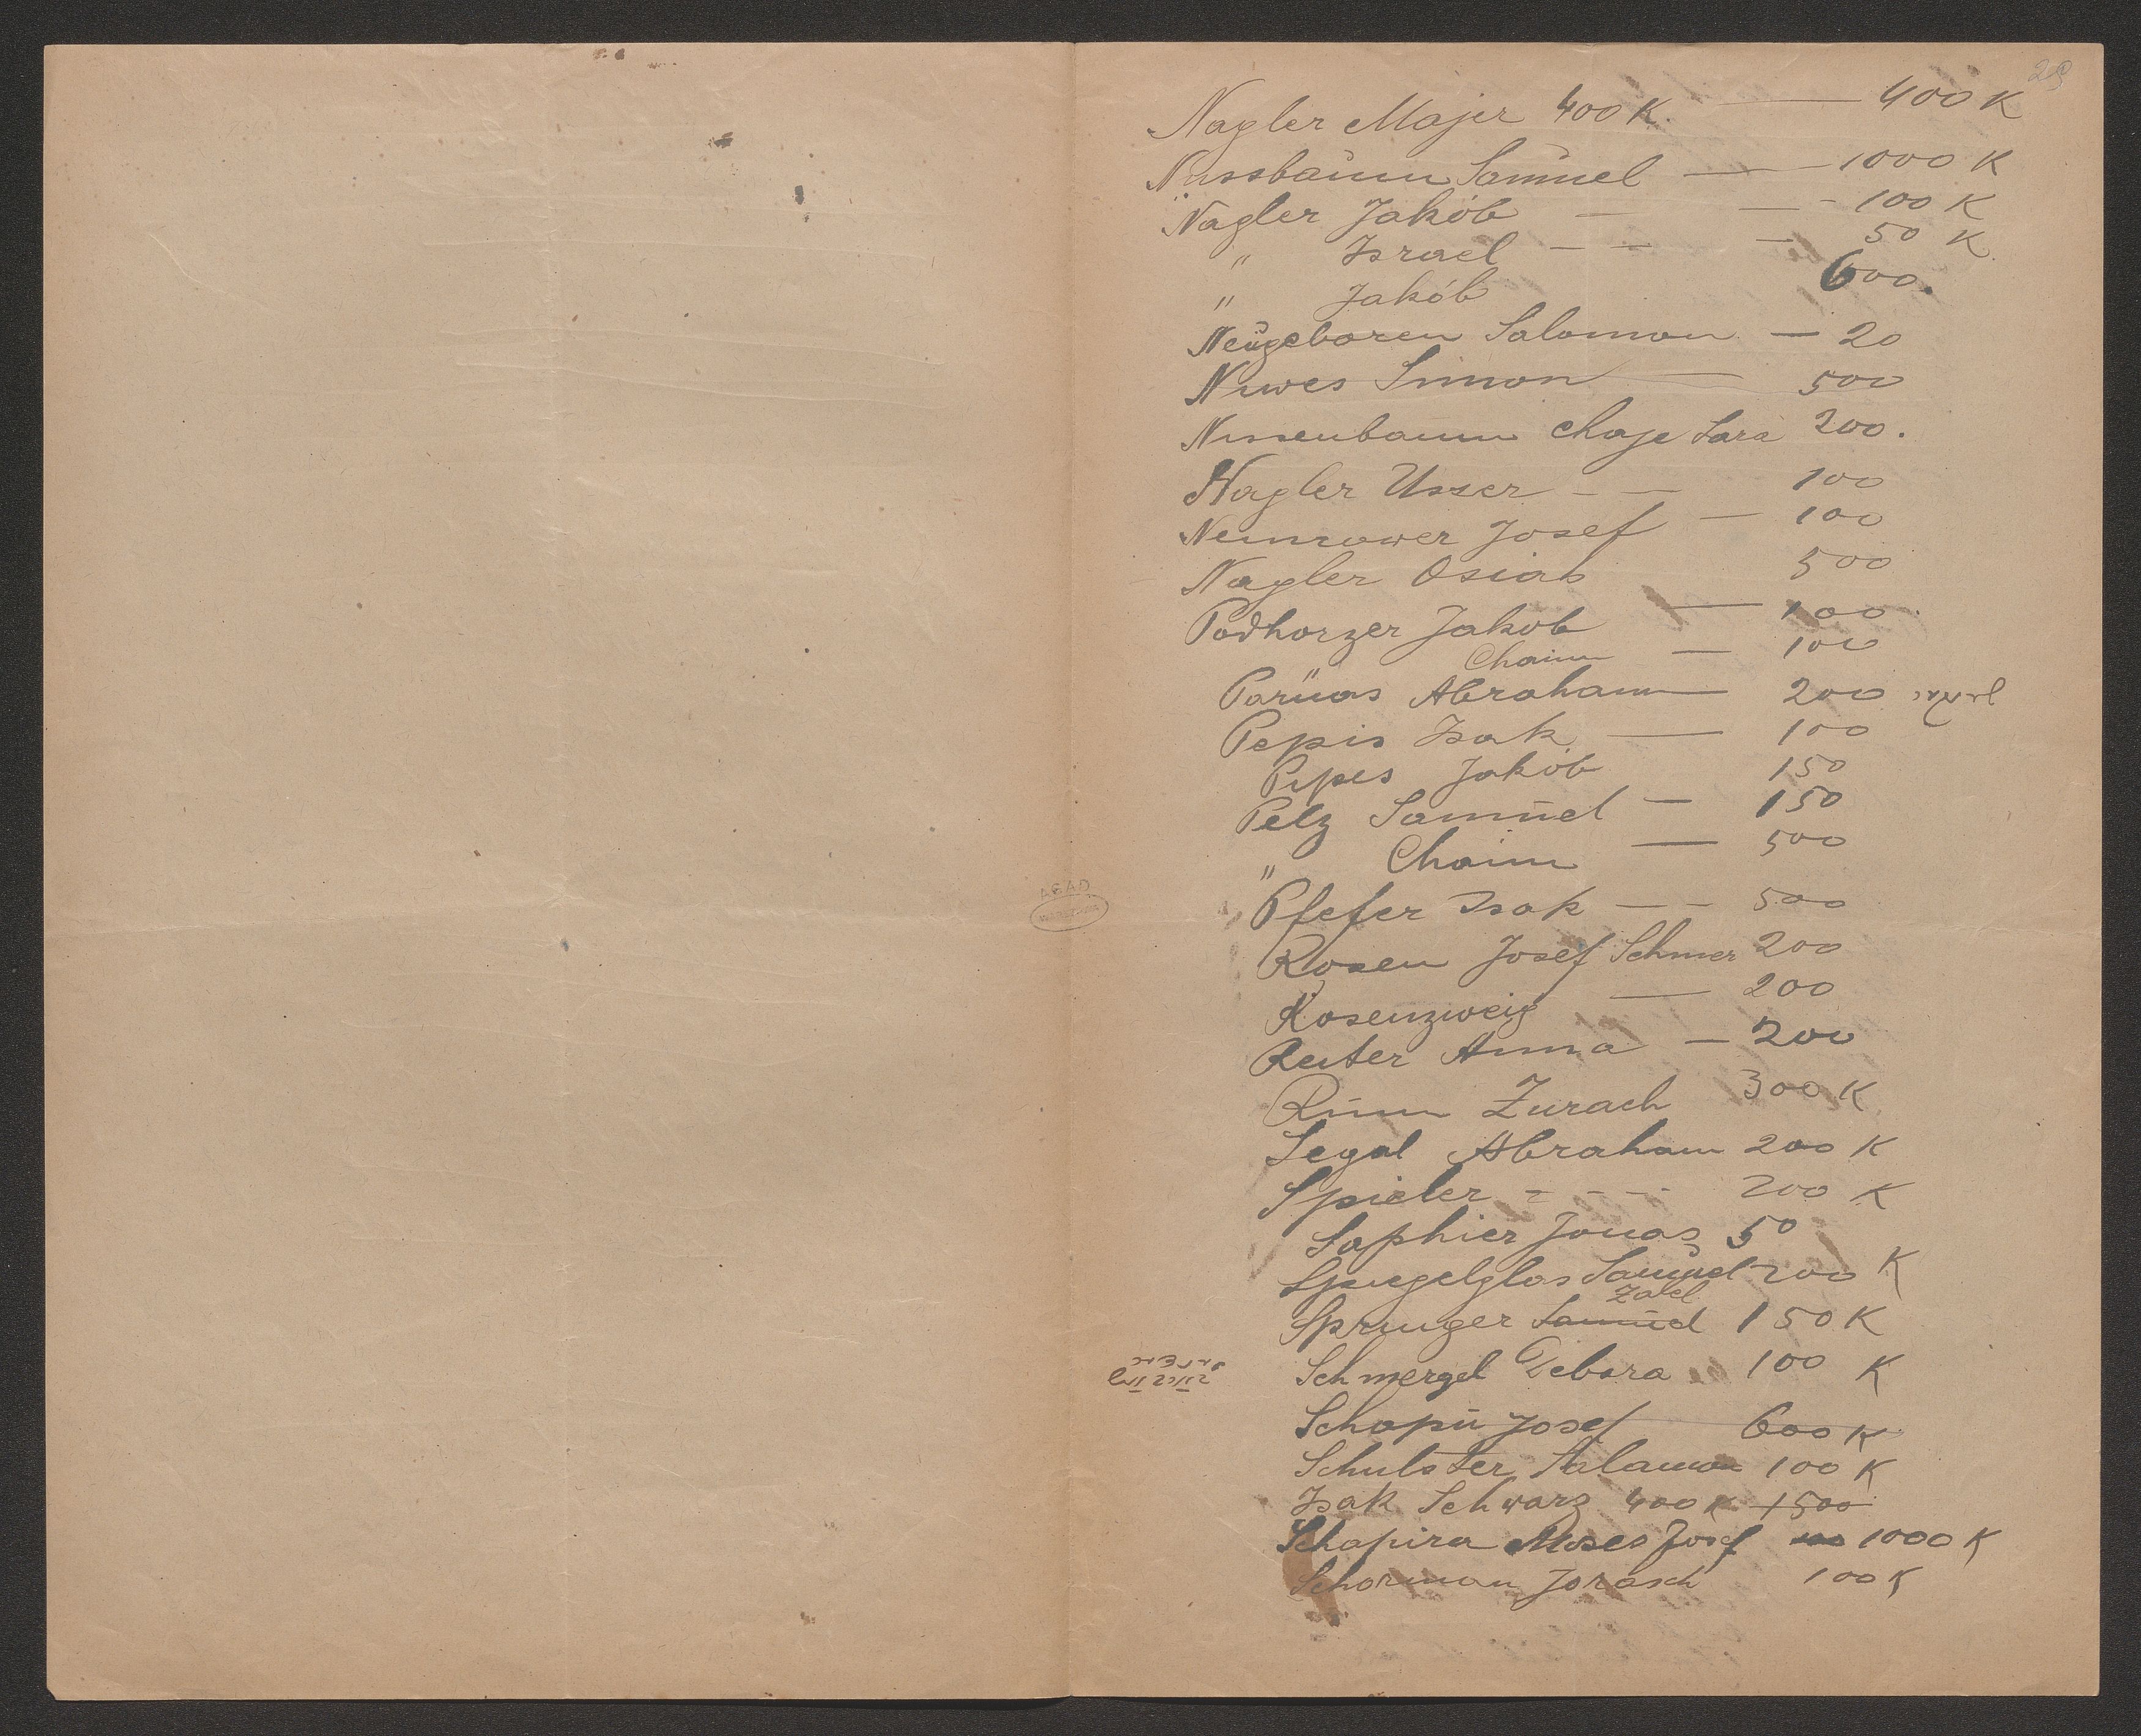 29
Nagler Majer 400 K. — 400 K
Nussbaum Samuel — 1000 K
Nagler Jakób — — 100 K
" Israel — — — 50 K
" Jakób 600.
Neugeboren Salomon — 20
Nuwes Simon — 500
Nussenbaum Chaje Sara 200.
Nagler Usser — — 100
Neumrower Josef — 100
Nagler Osias 500
Podhorzer Jakob — 100
" Chaim — 100
Parnas Abraham — 200
Pepis Isak — 100
Pipes Jakób 150
Pelz Samuel — 150
" Chaim — 500
Pfefer Isak — — 500
Rosen Josef Schmer 200
Rosenzweig — 200
Reiter Anna — 200
Rum Zurach 300 K
Segal Abraham 200 K
Spieler - - - 200 K
Saphier Jonas 50
Spiegelglas Samuel 200 K
Zalel
Sprunger Samuel 150 K
Schmergel Debora 100 K
Schapu Josef 600 K
Schulster Salamon 100 K
Isak Schwarz 400 K 1500
Schapira Moses Josef 100 1000 K
Schorman Jorasch 100 K